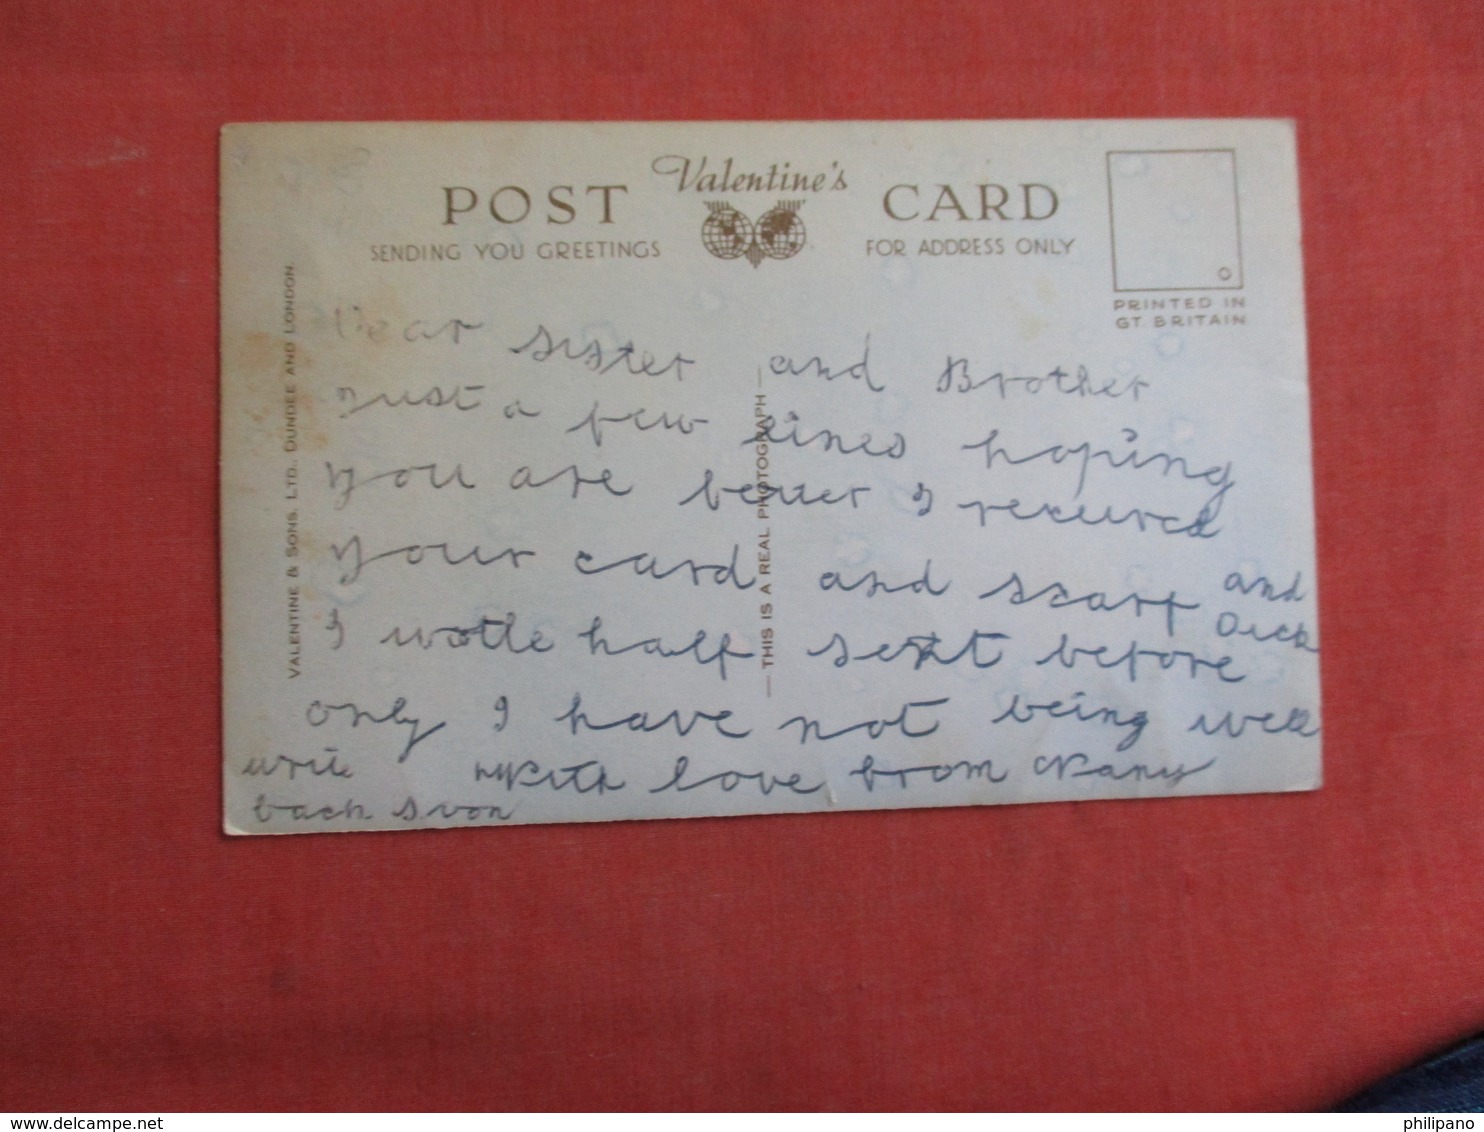 Valentine's
POST CARD
SENDING YOU GREETINGS
FOR ADDRESS ONLY
PRINTED IN
GT. BRITAIN
VALENTINE & SONS. LTD. DUNDEE AND LONDON.
THIS IS A REAL PHOTOGRAPH
Dear sister and Brother
Just a few lines hoping
you are better I recurved
your card and scarf and
Dick
I wotle half sent before
only I have not being well
With love from Nany
write
back soon
philipano